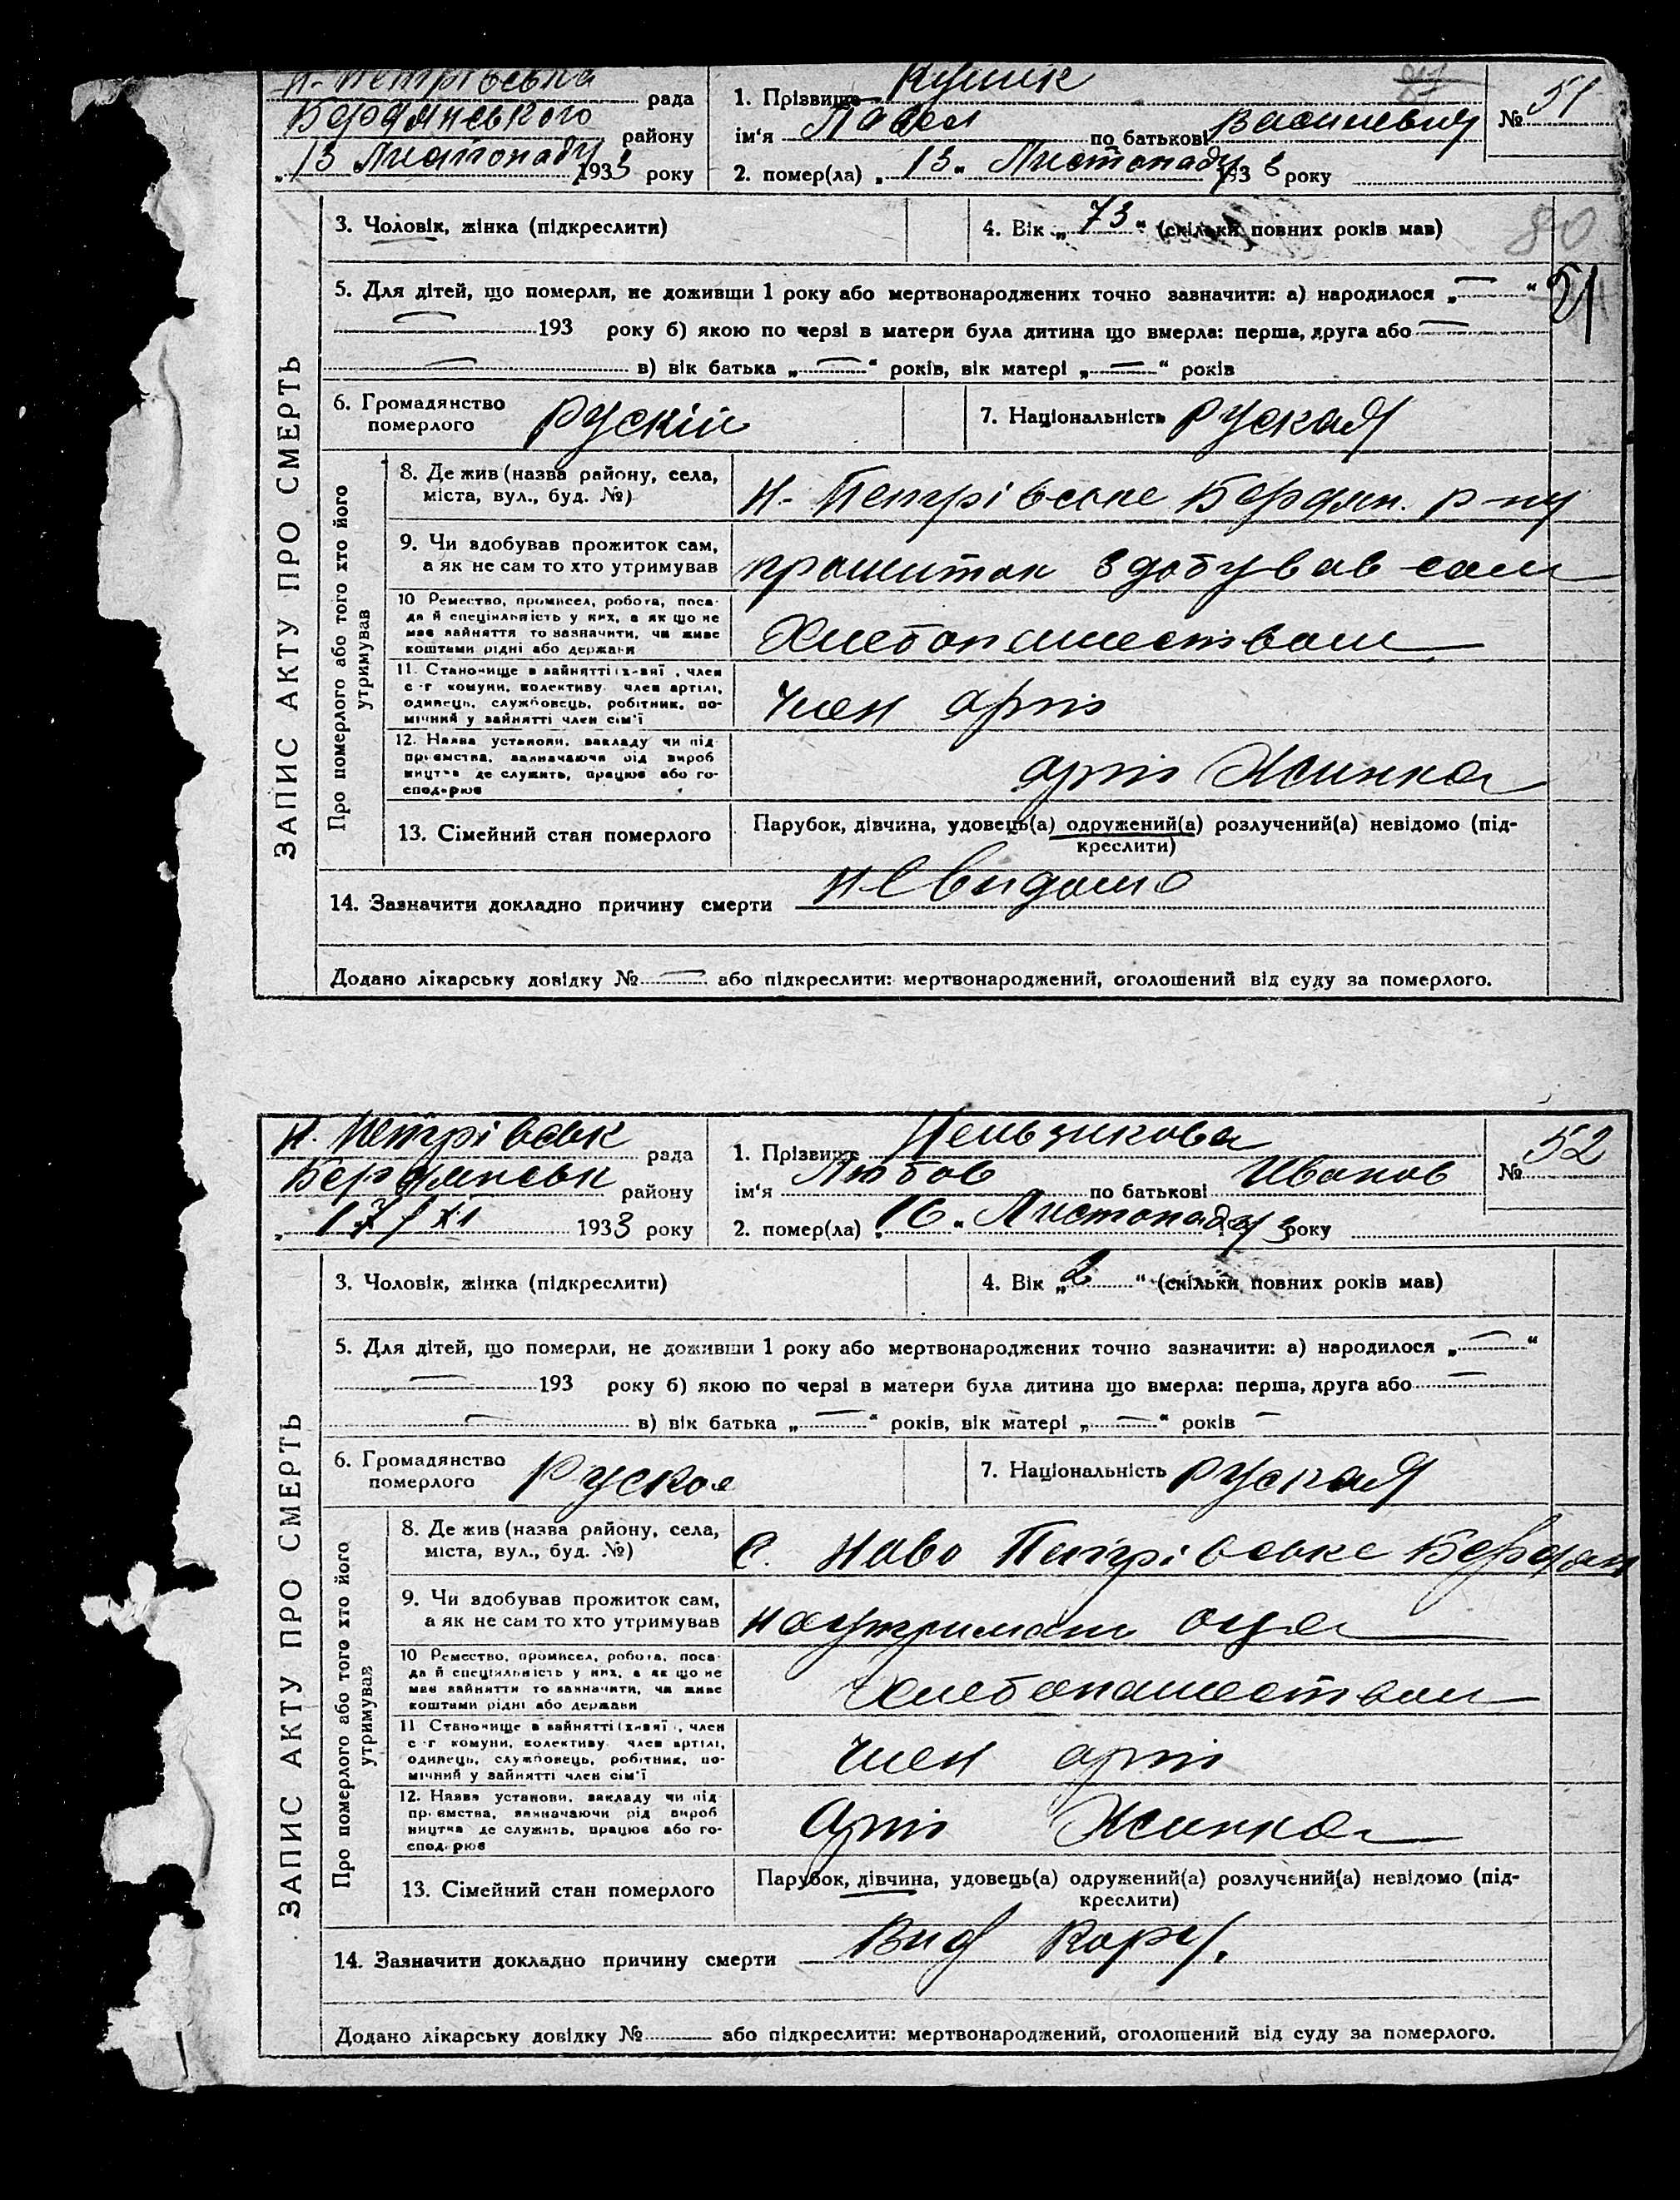 Н-Петрівська рада
Бердянського району
„13 Листопаду 1933 року
1. Прізвище Кулик
ім'я Павел по батькові Васильевич
2. помер(ла) „13„ Листопаду 193 3 року
№ 51
3. Чоловік, жінка (підкреслити)
4. Вік „73“ (скільки повних років мав)
80
51
5. Для дітей, що померли, не доживши 1 року або мертвонароджених точно зазначити: а) народилося „—“
— 193 року б) якою по черзі в матери була дитина що вмерла: перша, друга або —
— в) вік батька „—“ років, вік матері „—“ років
6. Громадянство
померлого рускій
7. Національність руская
ЗАПИС АКТУ ПРО СМЕРТЬ
Про померлого або того хто його
утримував
8. Де жив (назва району, села,
міста, вул., буд. №)
Н-Петрівське Бердян. р-ну
9. Чи здобував прожиток сам,
а як не сам то хто утримував
прошиток здобував сам
10 Ремество, промисел, робота, поса-
да й спеціяльність у них, а як що не
має зайняття то зазначити, чи живе
коштами рідні або держави
Хлебопашеством
11. Становище в зайнятті (х-вяї, член
с-г комуни, колективу, член артілі,
одинець, службовець, робітник, по-
мічний у зайнятті член сім'ї
член артіл
12. Назва установи, закладу чи під-
приємства, зазначаючи рід вироб
ництва де служить, працює або го-
сподарює
артіл
13. Сімейний стан померлого
Парубок, дівчина, удовець(а) одружений(а) розлучений(а) невідомо (під-
креслити)
14. Зазначити докладно причину смерти невидомо
Додано лікарську довідку № — або підкреслити: мертвонароджений, оголошений від суду за померлого.
Н. Петрівськ рада
Бердянськ району
„17/XI 1933 року
1. Прізвище
ім'я Любов по батькові Иванов
2. помер(ла) „16„ Листопаду 3 року
№ 52
3. Чоловік, жінка (підкреслити)
4. Вік „2“ (скільки повних років мав)
5. Для дітей, що померли, не доживши 1 року або мертвонароджених точно зазначити: а) народилося „—“
— 193 року б) якою по черзі в матери була дитина що вмерла: перша, друга або —
— в) вік батька „—“ років, вік матері „—“ років —
6. Громадянство
померлого Руское
7. Національність руская
ЗАПИС АКТУ ПРО СМЕРТЬ
Про померлого або того хто його
утримував
8. Де жив (назва району, села,
міста, вул., буд. №)
С. Ново Петрівське Бердян
9. Чи здобував прожиток сам,
а як не сам то хто утримував
на утриман оца
10 Ремество, промисел, робота, поса-
да й спеціяльність у них, а як що не
має зайняття то зазначити, чи живе
коштами рідні або держави
Хлебопашеством
11 Становище в зайнятті (х-вяї, член
с-г комуни, колективу, член артілі,
одинець, службовець, робітник, по-
мічний у зайнятті член сім'ї
член артіл
12. Назва установи, закладу чи під-
приємства, зазначаючи рід вироб
ництва де служить, працює або го-
сподарює
Артіл
13. Сімейний стан померлого
Парубок, дівчина, удовець(а) одружений(а) розлучений(а) невідомо (під-
креслити)
14. Зазначити докладно причину смерти Вид Кори.
Додано лікарську довідку № — або підкреслити: мертвонароджений, оголошений від суду за померлого.